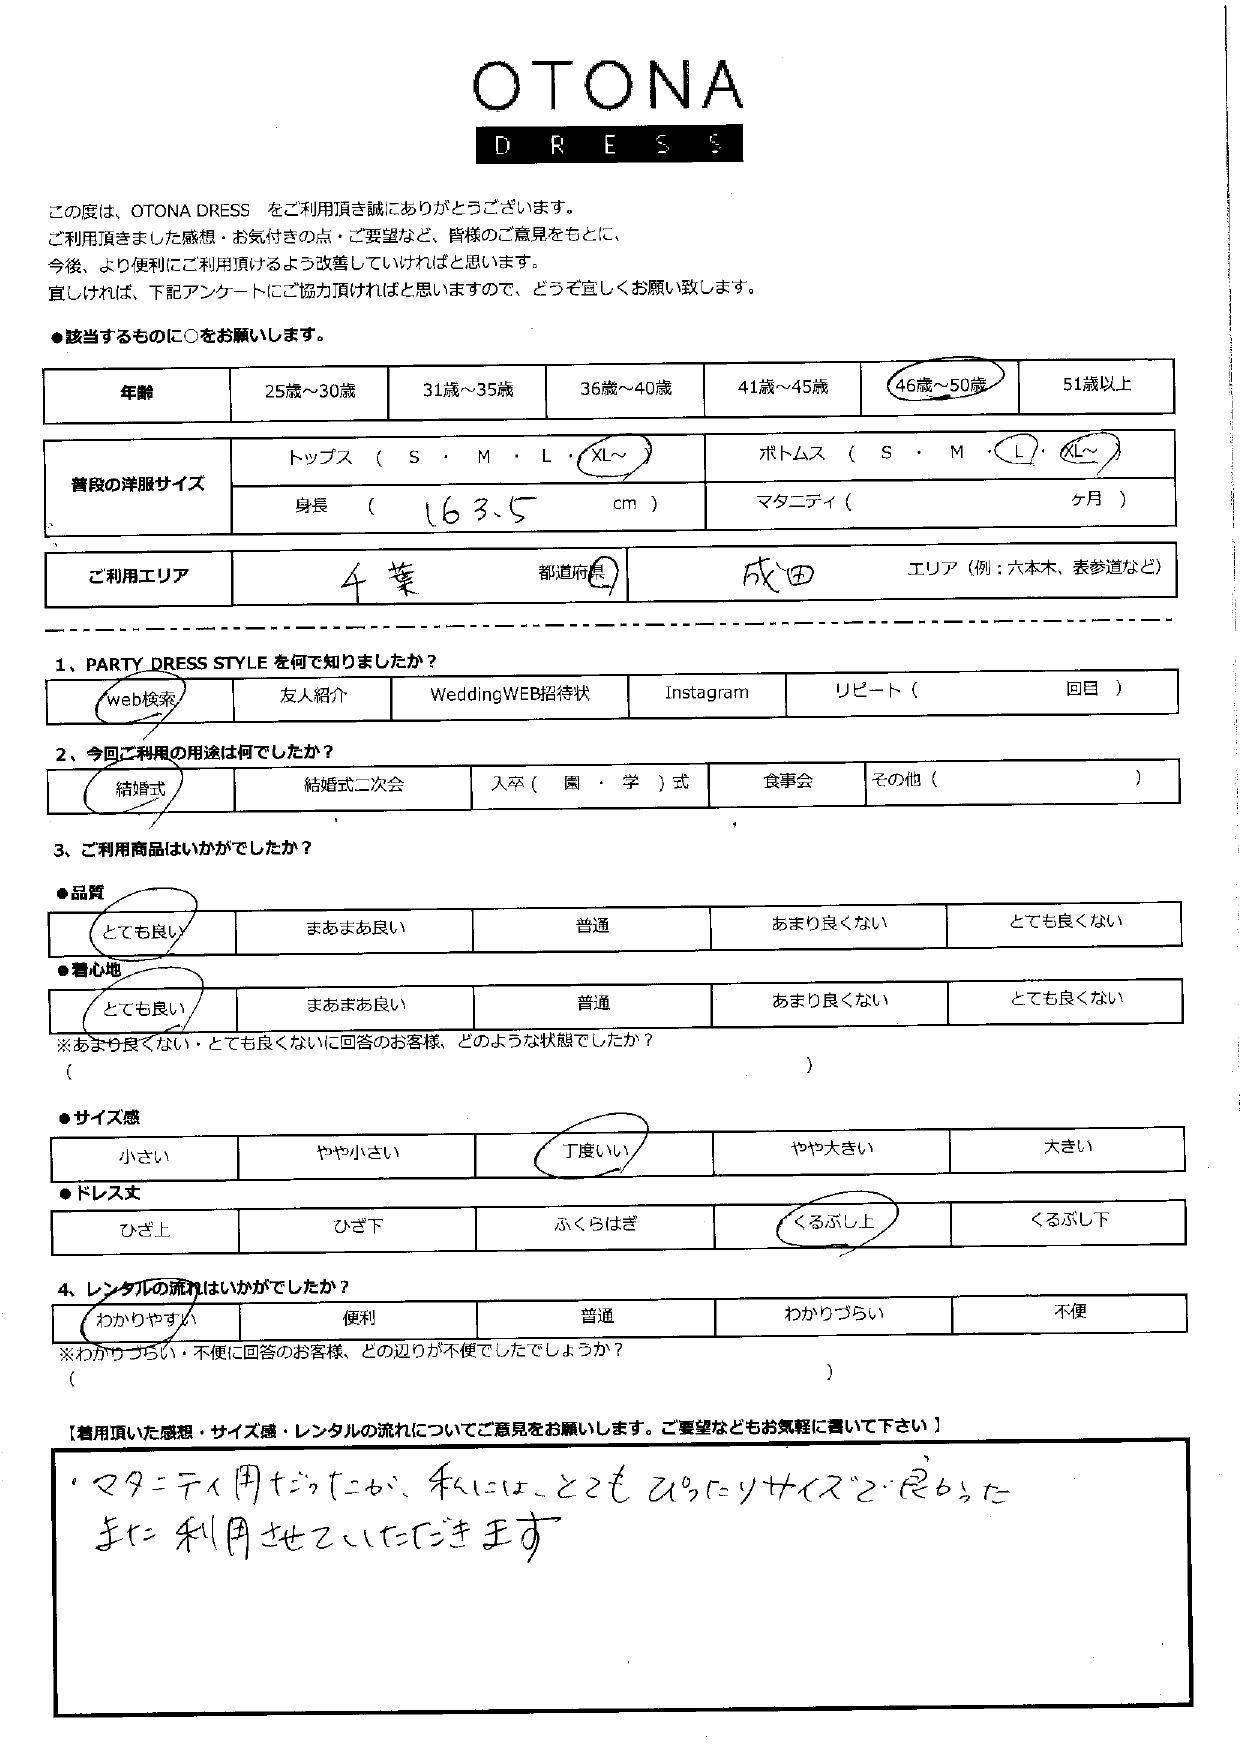 OTONA
DRESS
この度は、OTONA DRESS をご利用頂き誠にありがとうございます。
ご利用頂きました感想・お気付きの点・ご要望など、皆様のご意見をもとに、
今後、より便利にご利用頂けるよう改善していければと思います。
宜しければ、下記アンケートにご協力頂ければと思いますので、どうぞ宜しくお願い致します。
●該当するものに○をお願いします。
年齢 25歳～30歳 31歳～35歳 36歳～40歳 41歳～45歳 46歳～50歳 51歳以上
普段の洋服サイズ
トップス ( S ・ M ・ L ・ XL～ ) ボトムス ( S ・ M ・ L ・ XL～ )
身長 ( 163.5 cm ) マタニティ ( ヶ月 )
ご利用エリア 千葉 都道府県 成田 エリア（例：六本木、表参道など）
1、PARTY DRESS STYLE を何で知りましたか？
web検索 友人紹介 WeddingWEB招待状 Instagram リピート ( 回目 )
2、今回ご利用の用途は何でしたか？
結婚式 結婚式二次会 入卒 ( 園 ・ 学 ) 式 食事会 その他 ( )
3、ご利用商品はいかがでしたか？
●品質
とても良い まあまあ良い 普通 あまり良くない とても良くない
●着心地
とても良い まあまあ良い 普通 あまり良くない とても良くない
※あまり良くない・とても良くないに回答のお客様、どのような状態でしたか？
( )
●サイズ感
小さい やや小さい 丁度いい やや大きい 大きい
●ドレス丈
ひざ上 ひざ下 ふくらはぎ くるぶし上 くるぶし下
4、レンタルの流れはいかがでしたか？
わかりやすい 便利 普通 わかりづらい 不便
※わかりづらい・不便に回答のお客様、どの辺りが不便でしたでしょうか？
( )
【着用頂いた感想・サイズ感・レンタルの流れについてご意見をお願いします。ご要望などもお気軽に書いて下さい 】
・マタニティ用だったが、私には、とてもぴったりサイズで良かった
また利用させていただきます